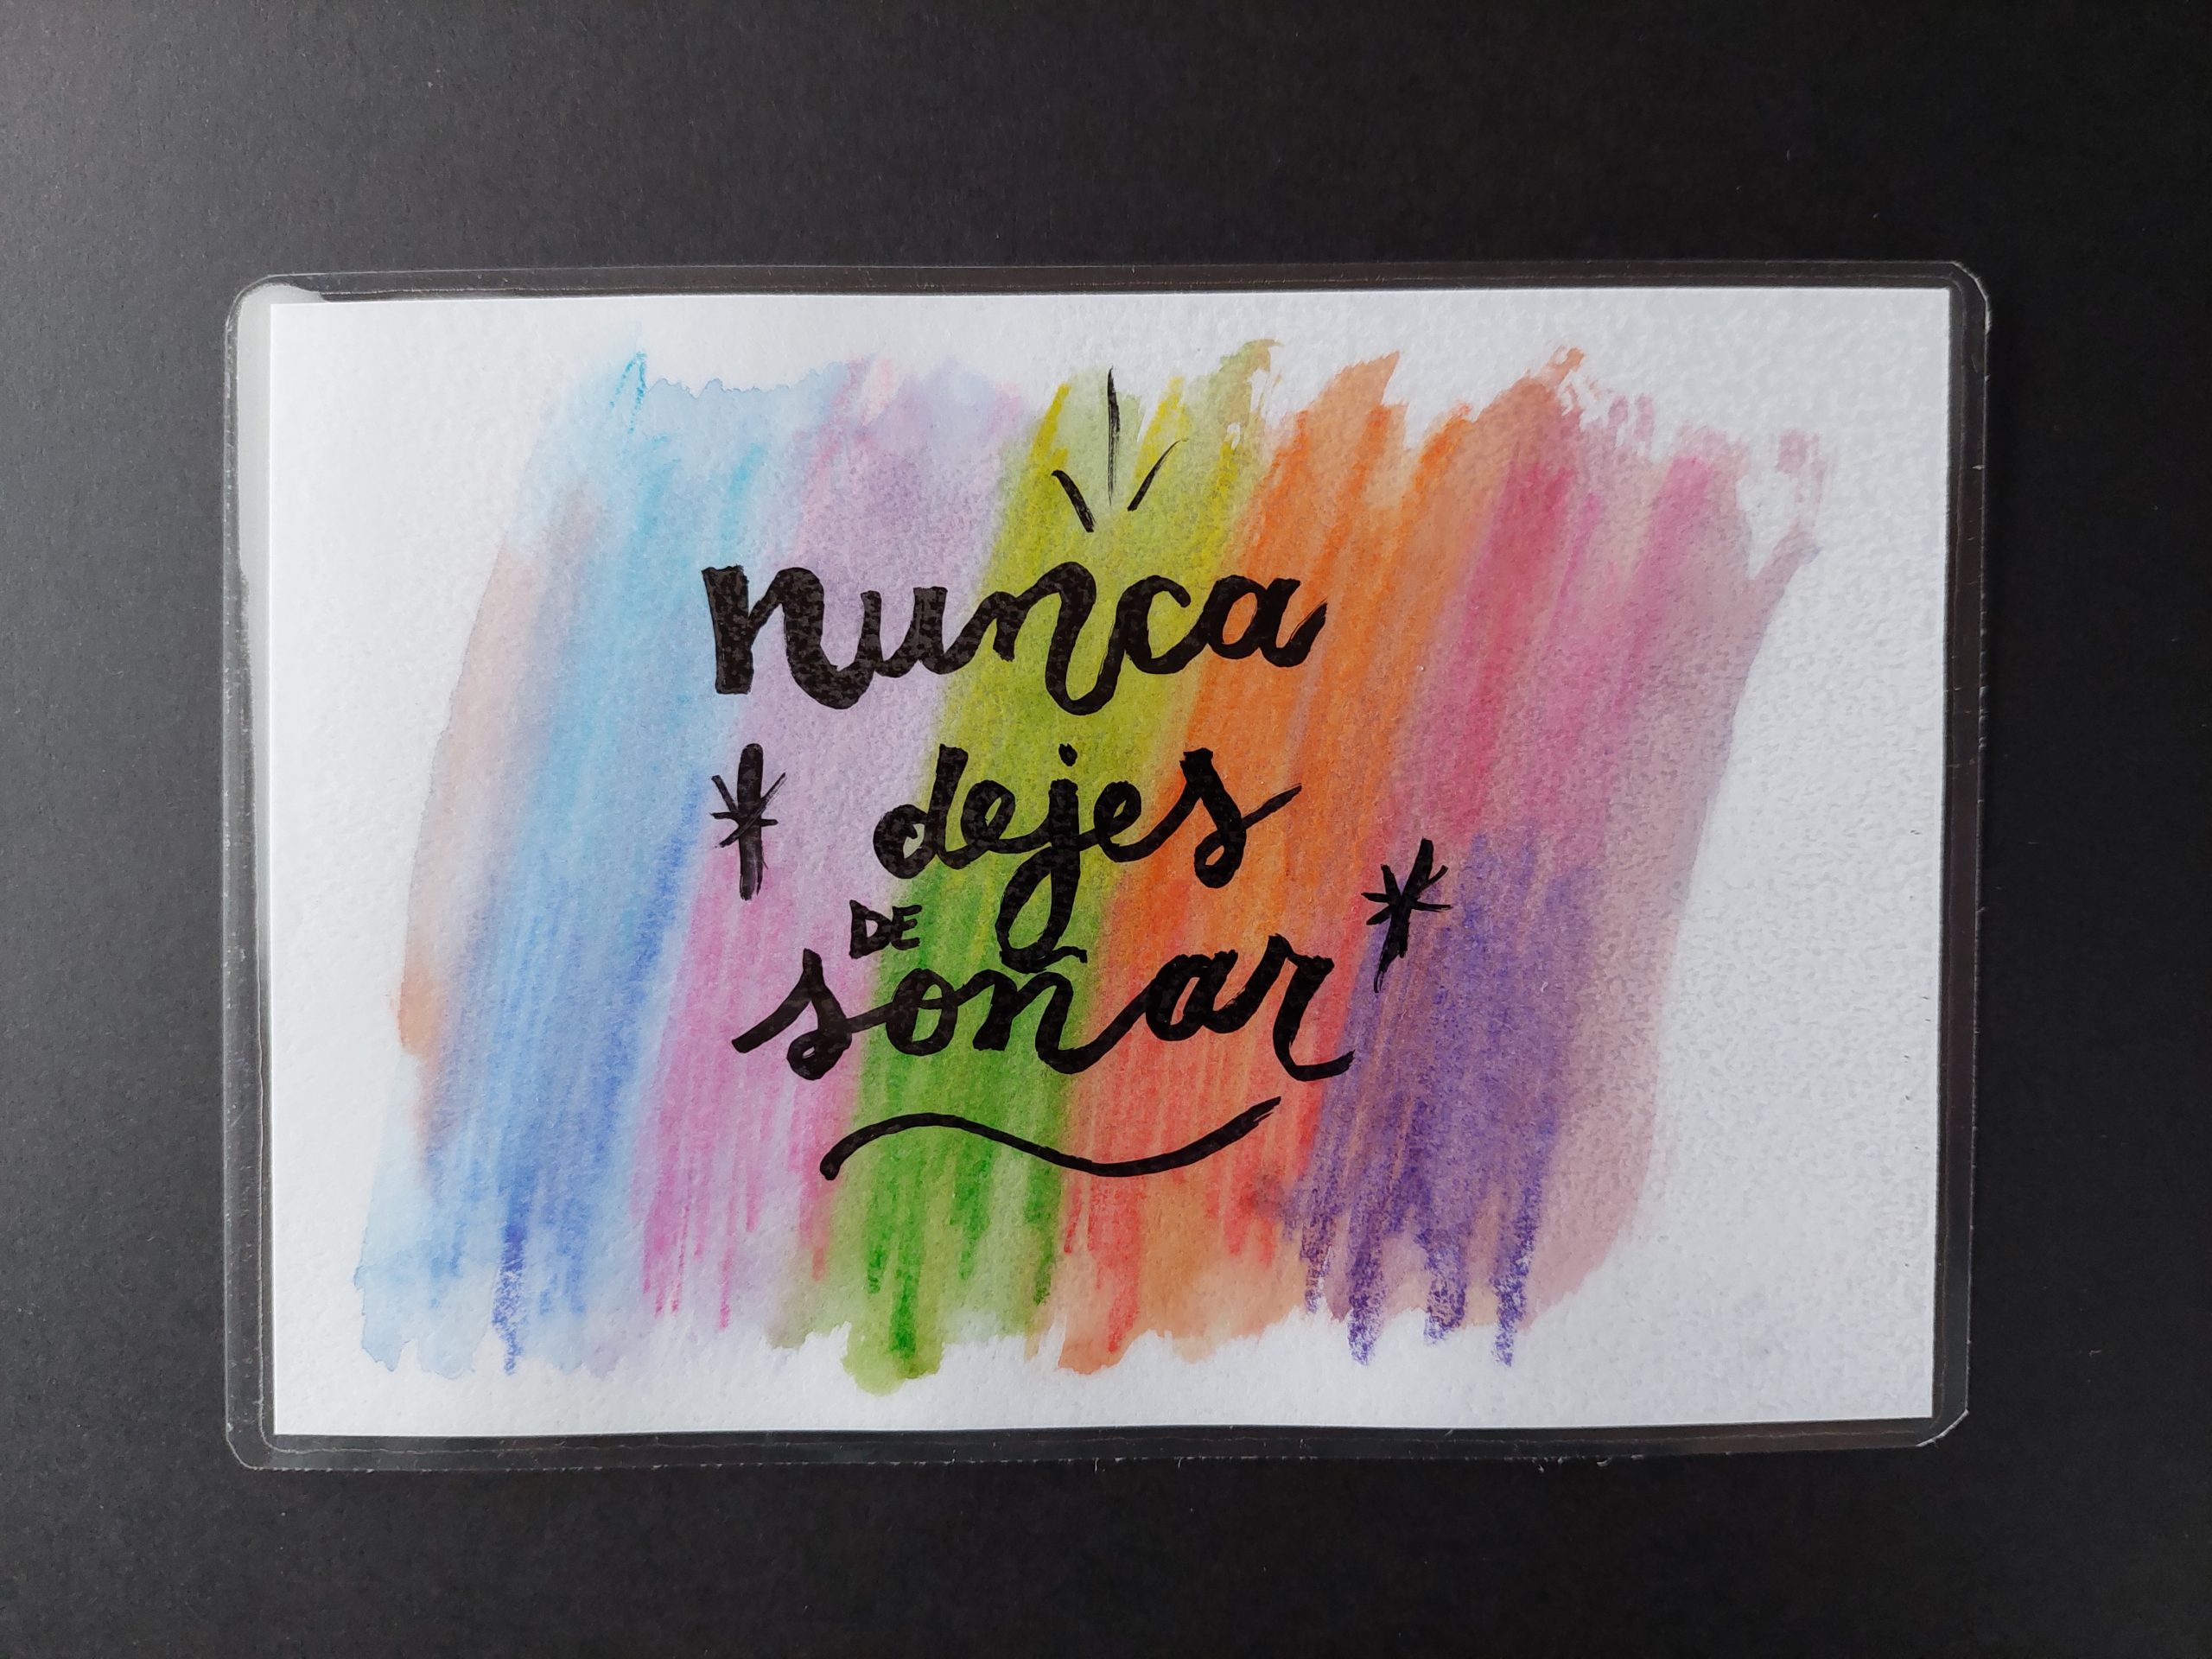 nunca
dejes
DE
soñar